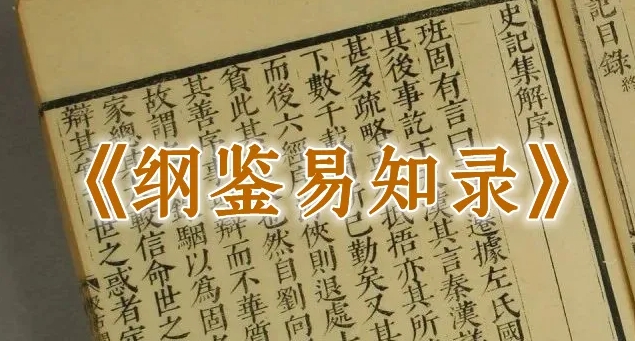 《纲鉴易知录》
記目錄終
史記集解序
班固有言曰遷據左氏國
其後事訖漢其言秦漢
甚多疏略抵捂亦其所
下數千載已勤矣又其
而後六經俠則退處
貧此其也然自劉向
其善序辯而不華質
故謂錄駰以為固
家總其較信命世之
辯其世之惑者定